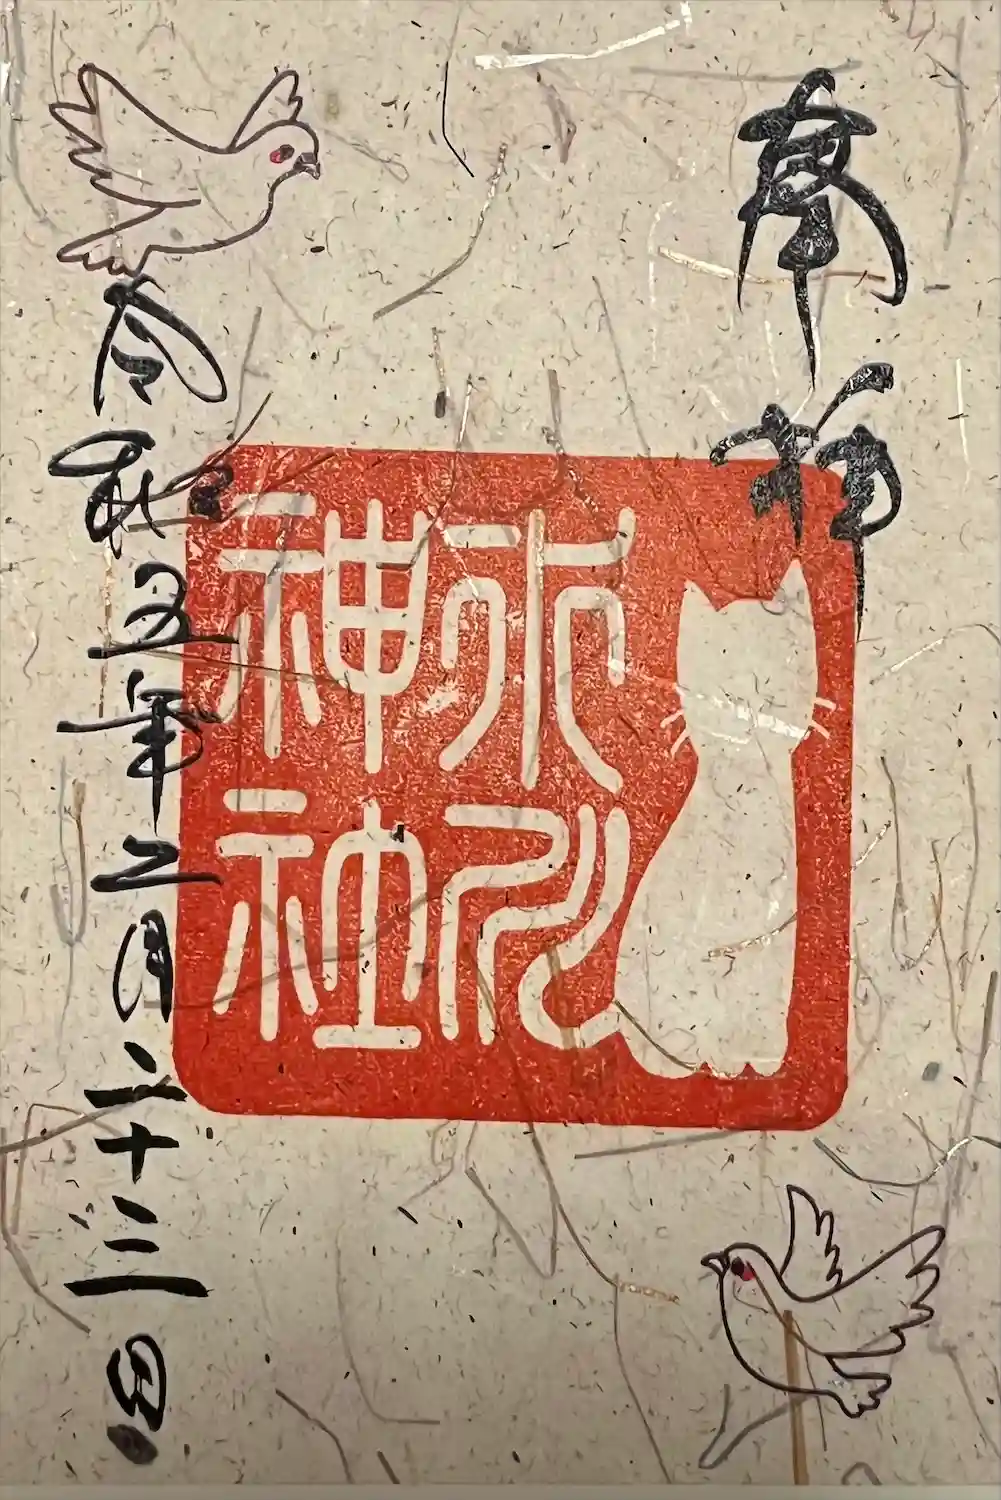 奉拝
神社
令和五年二月二十三日